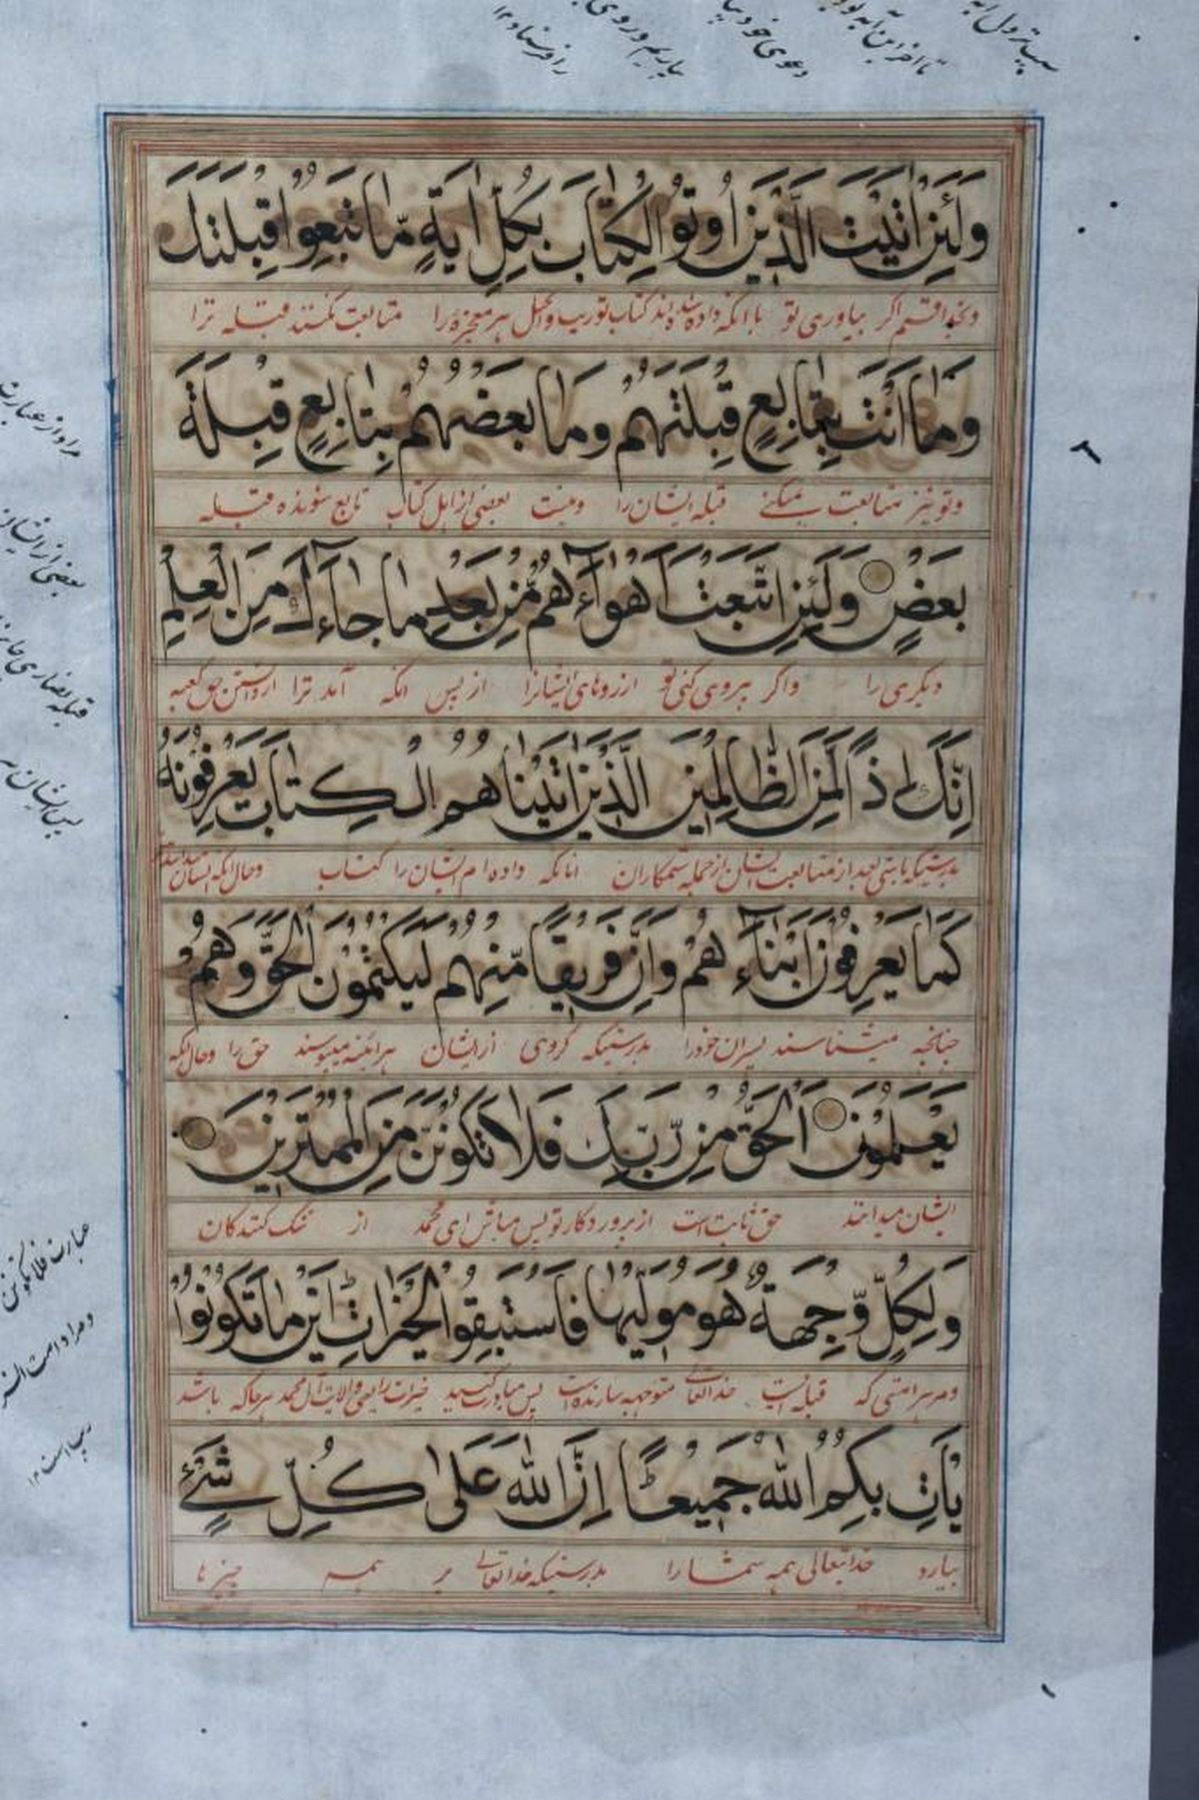 وَلَئِنْ اَتَيْتَ الَّذِيْنَ اُوتُوا الْكِتَابَ بِكُلِّ اٰيَةٍ مَّا تَبِعُوْا قِبْلَتَكَ
اگر بیاوری تو با آنکه داده شده‌اند کتاب توریت و انجیل هر معجزهٔ را متابعت نکنند قبله ترا
وَمَا اَنْتَ بِتَابِعٍ قِبْلَتَهُمْ وَمَا بَعْضُهُمْ بِتَابِعٍ قِبْلَةَ
و تو نیز متابعت قبله ایشان را و نیست بعضی از اهل کتاب تابع شونده قبله
بَعْضٍ وَلَئِنِ اتَّبَعْتَ اَهْوَآءَهُمْ مِّنْ بَعْدِ مَا جَآءَكَ مِنَ الْعِلْمِ
دیکری را و اگر پیروی کنی تو ارزوهای ایشانرا از پس انکه آمد ترا
اِنَّكَ اِذًا لَّمِنَ الظَّالِمِيْنَ الَّذِيْنَ اٰتَيْنَاهُمُ الْكِتَابَ يَعْرِفُوْنَهُ
بدرستیکه باشی بعد از متابعت ایشان از جمله ستمکاران انانکه داده‌ام ایشان را کتاب
كَمَا يَعْرِفُوْنَ اَبْنَآءَهُمْ وَاِنَّ فَرِيْقًا مِّنْهُمْ لَيَكْتُمُوْنَ الْحَقَّ وَهُمْ
چنانچه میشناسند پسران خودرا بدرستیکه کروهی از ایشان هراینه میپوشند حق را و حال انکه
يَعْلَمُوْنَ اَلْحَقُّ مِنْ رَّبِّكَ فَلَا تَكُوْنَنَّ مِنَ الْمُمْتَرِيْنَ
ایشان میدانند حق ثابت است از پروردکار تو پس مباش ای محمد از شک کنندکان
وَلِكُلٍّ وِّجْهَةٌ هُوَ مُوَلِّيْهَا فَاسْتَبِقُوا الْخَيْرَاتِ اَيْنَ مَا تَكُوْنُوْا
قبله ایست خدایتعالی متوجهه سازنده است پس مبادرت کنید خیرات آل محمد هرجا که باشد
يَاْتِ بِكُمُ اللهُ جَمِيْعًا اِنَّ اللهَ عَلٰى كُلِّ شَيْءٍ
بیارد خدایتعالی همه شما را بدرستیکه خدایتعالی بر همه چیزها